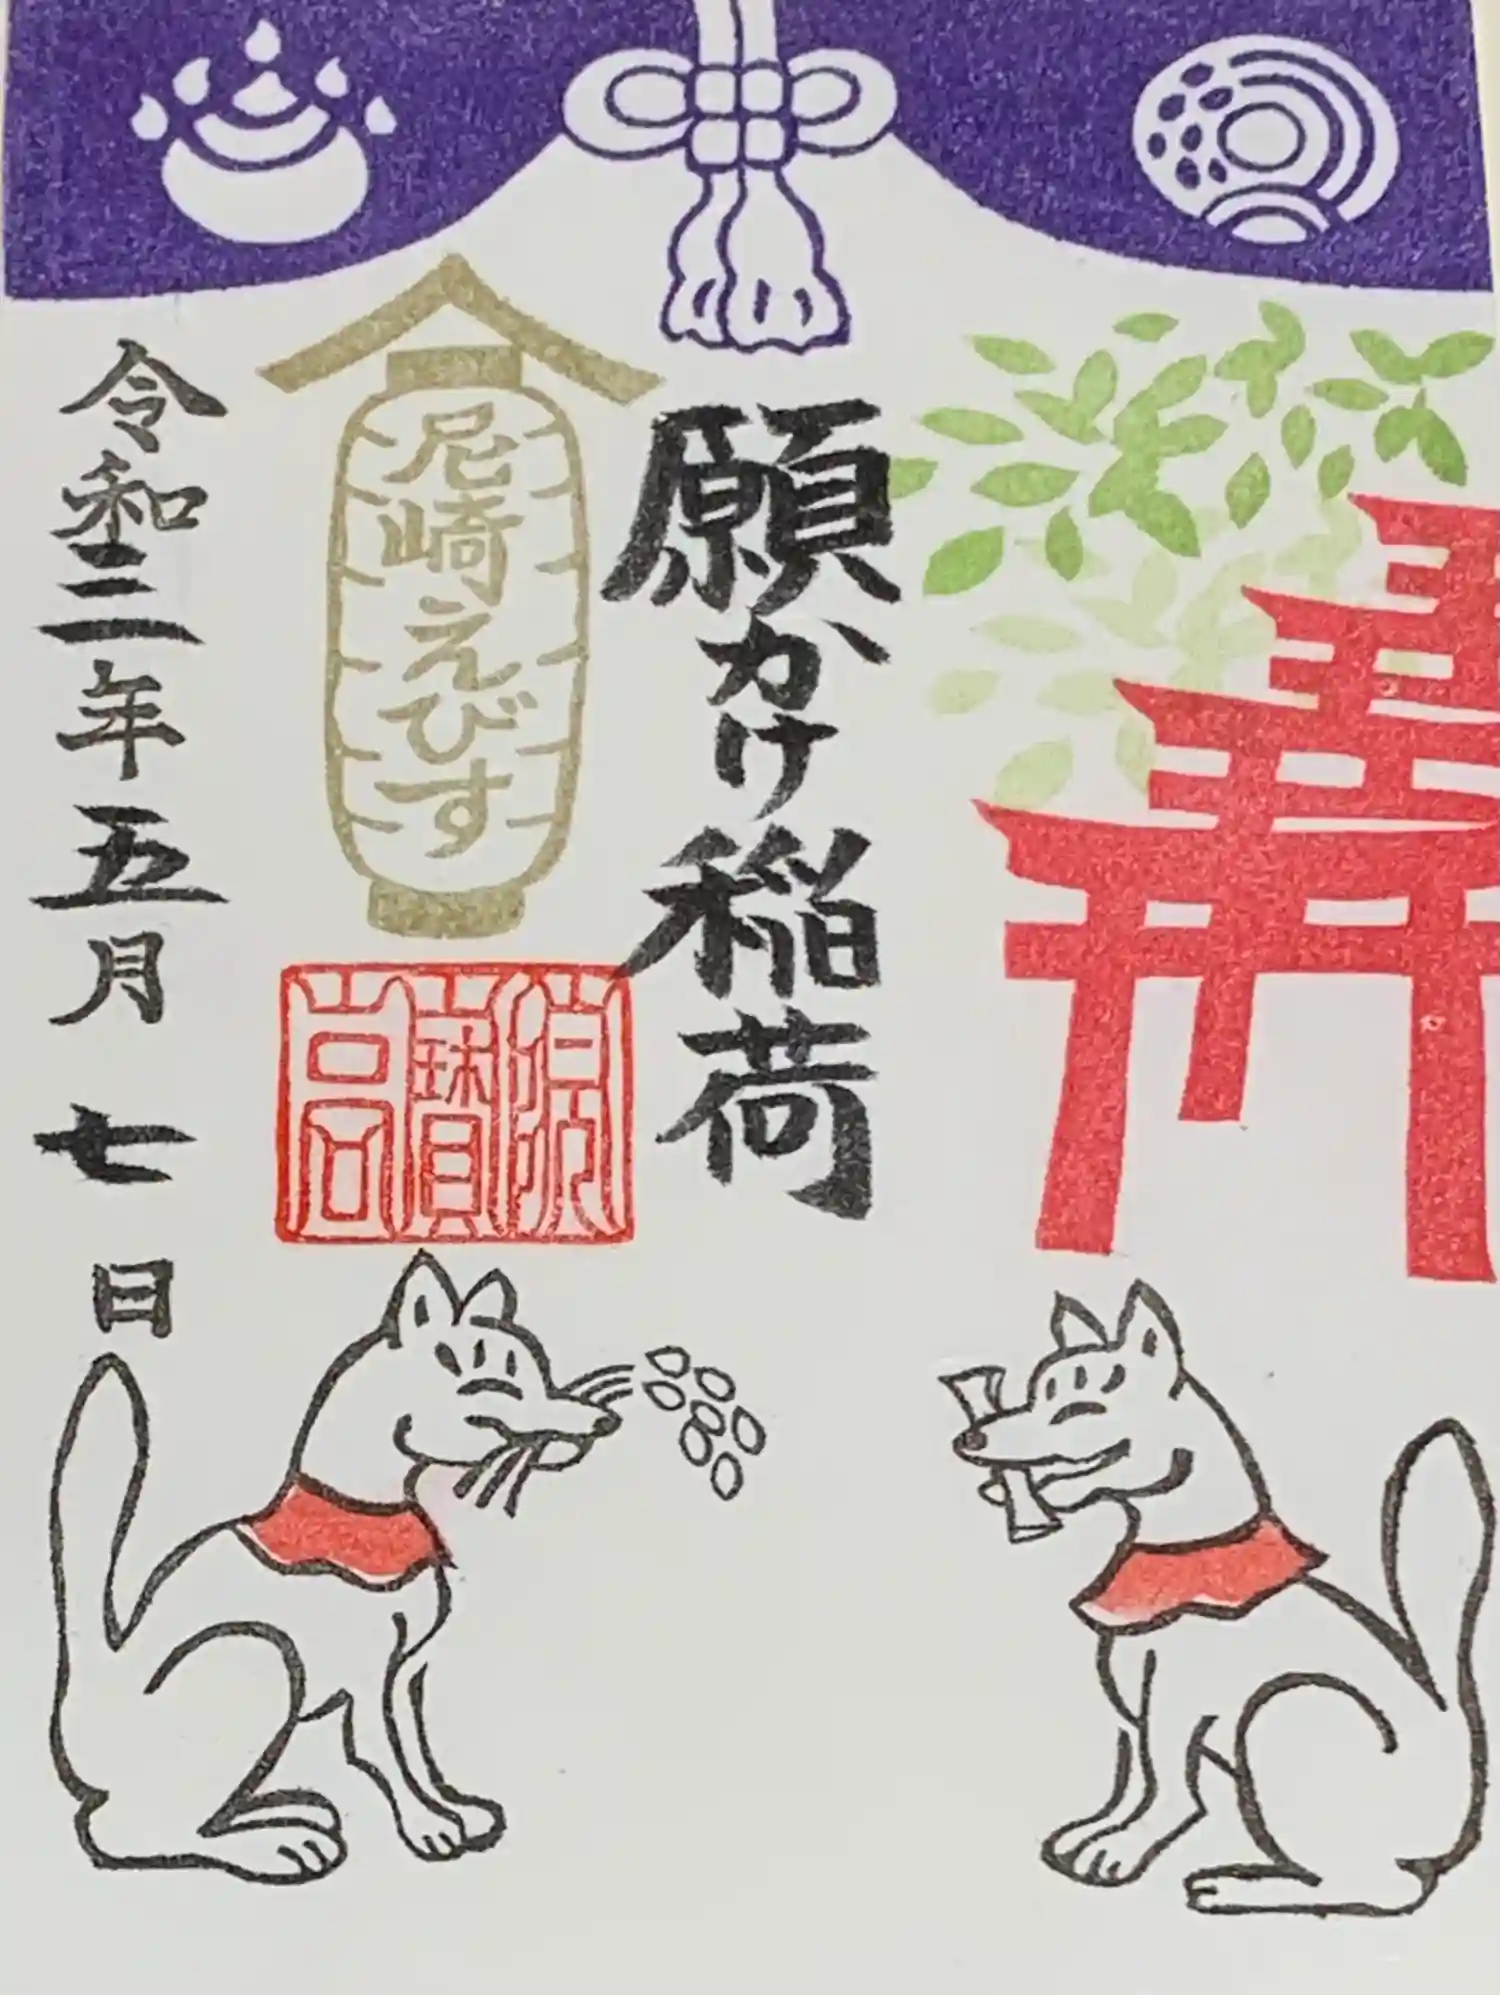 願かけ稲荷
尼崎えびす
令和三年五月七日